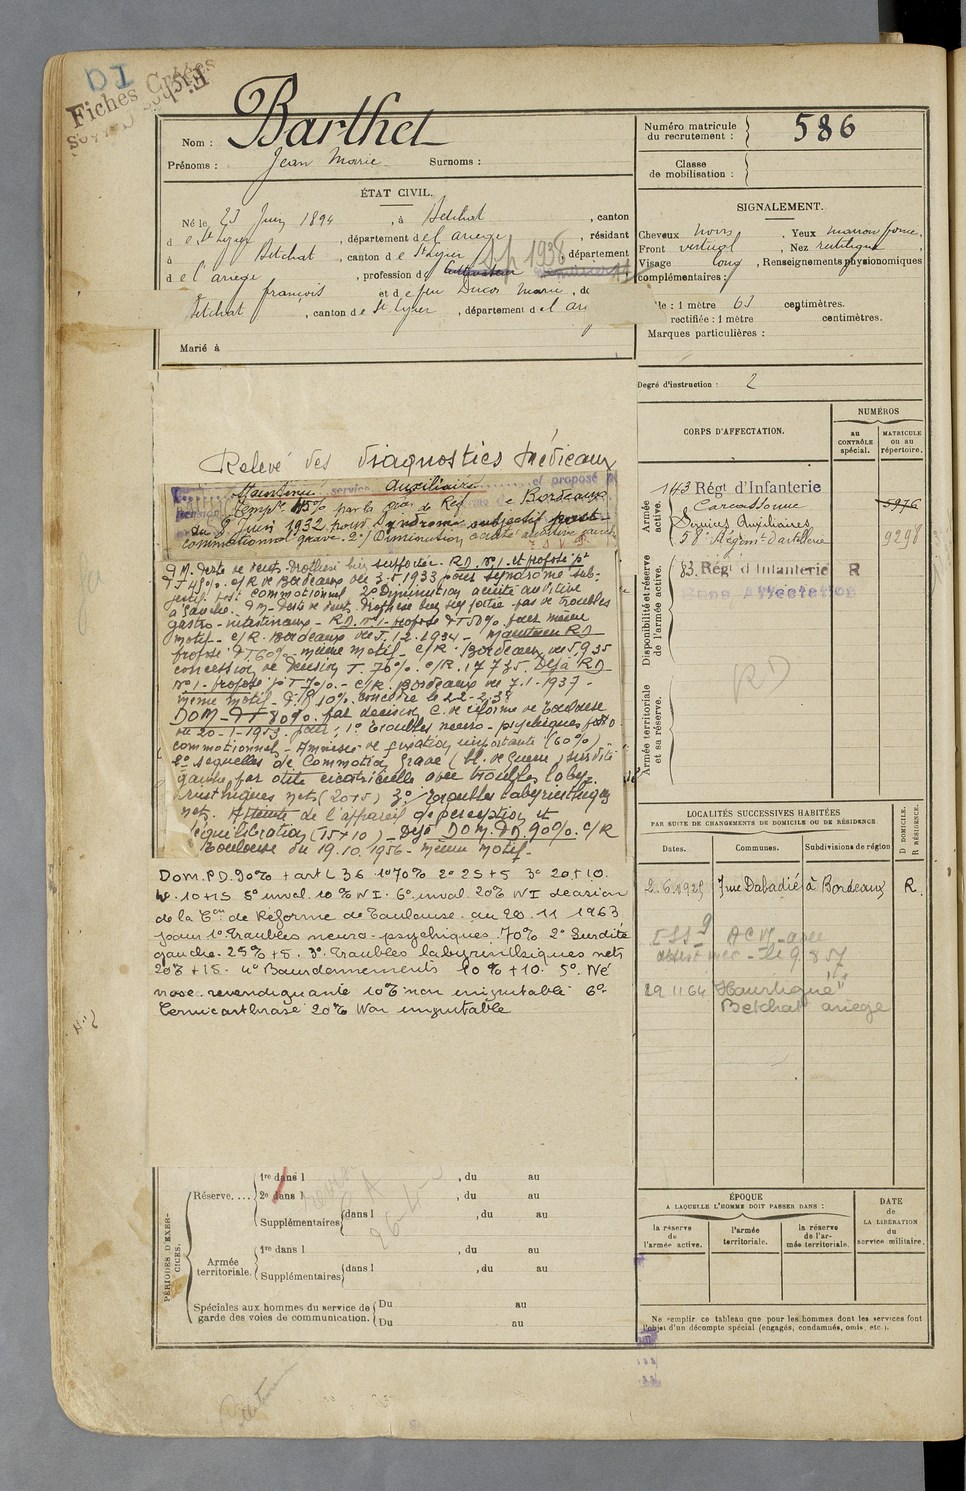 DI
Fiches Créées
Nom : Barthet
Prénoms : Jean Marie Surnoms :
ÉTAT CIVIL.
Né le 23 Juin 1894, à Betchat, canton
de St Lizier, département de l'ariege, résidant
à Betchat, canton de St Lizier, département
de l'ariege, profession de Cultivateur 1938
françois et de feu Ducos Marie, d
Betchat, canton de St Lizier, département de l'ari
Marié à
Numéro matricule du recrutement : 586
Classe de mobilisation :
SIGNALEMENT.
Cheveux noirs, Yeux marron foncé,
Front vertical, Nez rectiligne,
Visage long, Renseignements physionomiques
complémentaires :
le : 1 mètre 65 centimètres.
rectifiée : 1 mètre centimètres.
Marques particulières :
Degré d'instruction : 2
CORPS D'AFFECTATION.
NUMÉROS
au CONTRÔLE spécial.
MATRICULE ou au répertoire.
Armée active.
143 Régt d'Infanterie
Carcassonne
5976
Services Auxiliaires
58e Régimt d'artillerie 9298
Disponibilité et réserve de l'armée active.
83. Régt d'Infanterie R
Sans Affectation
RD
Armée territoriale et sa réserve.
Relevé des Diagnostics Médicaux
Maintenu service Auxiliaire et proposé p
pension tempre 45% par la de Réf de Bordeaux
du 2 Juin 1932 pour Syndrome subjectif post
commotionnel grave. 2°/ Diminution acuité auditive gauche
RD. n°1. et proposé pt
PT 45%. c/R de Bordeaux du 3.5.1933 pour syndrome sub-
jectif post commotionnel 2° Diminution acuité auditive
à gauche.
gastro-intestinaux - RD. n°1 - proposé PT 50% pour même
motif - c/R. Bordeaux du 5.12.1934 - Maintien RD
proposé PT 60% - même motif - c/R. Bordeaux du 5.9.35
concession de pension T 70%. c/R. 17735. Déjà RD
n°1 - proposé pr T 70% - c/R. Bordeaux du 7-1-1937 -
même motif -
DOM - PT 80% par décision C. de réforme de Toulouse
du 20-1-1953 pour 1° troubles neuro-psychiques post
commotionnels - Amnésie de fixation importante (60%)
2° séquelles de Commotion grave (Bl. de Guerre) surdité
gauche par otite cicatricielle avec troubles laby-
rinthiques nets (20+5) 3° troubles labyrinthiques
nets. Atteinte de l'appareil de perception et
équilibration (15+10) - Déjà DOM. PD. 90%. C/R
Toulouse du 19.10.1956 - même motif -
Dom. P.D. 90% + art L 36 1° 70% 2° 25+5 3° 20+10.
4°. 10+15 5° inval. 10% N I. 6° inval. 20% N I decision
de la Con de Réforme de Toulouse. du 20. 11 1963
pour 1° Troubles neuro-psychiques 70% 2° Surdité
gauche. 25% +5. 3° Troubles labyrinthiques nets
20% +15. 4° Bourdonnements 10% +10. 5°. Né
vrose. revendiquante 10% non imputable 6°
Cervicarthrose 20% Non imputable
LOCALITÉS SUCCESSIVES HABITÉES
PAR SUITE DE CHANGEMENTS DE DOMICILE OU DE RÉSIDENCE
Dates. Communes. Subdivisions de région
D DOMICILE. R RÉSIDENCE.
2.6.1925 7 rue Dabadié à Bordeaux R.
29 11 64 "Hourtigue"
Betchat ariege
PÉRIODES D'EXERCICES.
Réserve. ... 1re dans l , du au
2e dans l , du au
Supplémentaires dans l , du au
Armée territoriale. 1re dans l , du au
Supplémentaires dans l , du au
Spéciales aux hommes du service de garde des voies de communication. Du au
Du au
ÉPOQUE
A LAQUELLE L'HOMME DOIT PASSER DANS :
la réserve de l'armée active.
l'armée territoriale.
la réserve de l'armée territoriale.
DATE de LA LIBÉRATION du service militaire.
Ne remplir ce tableau que pour les hommes dont les services font
l'objet d'un décompte spécial (engagés, condamnés, omis, etc.).